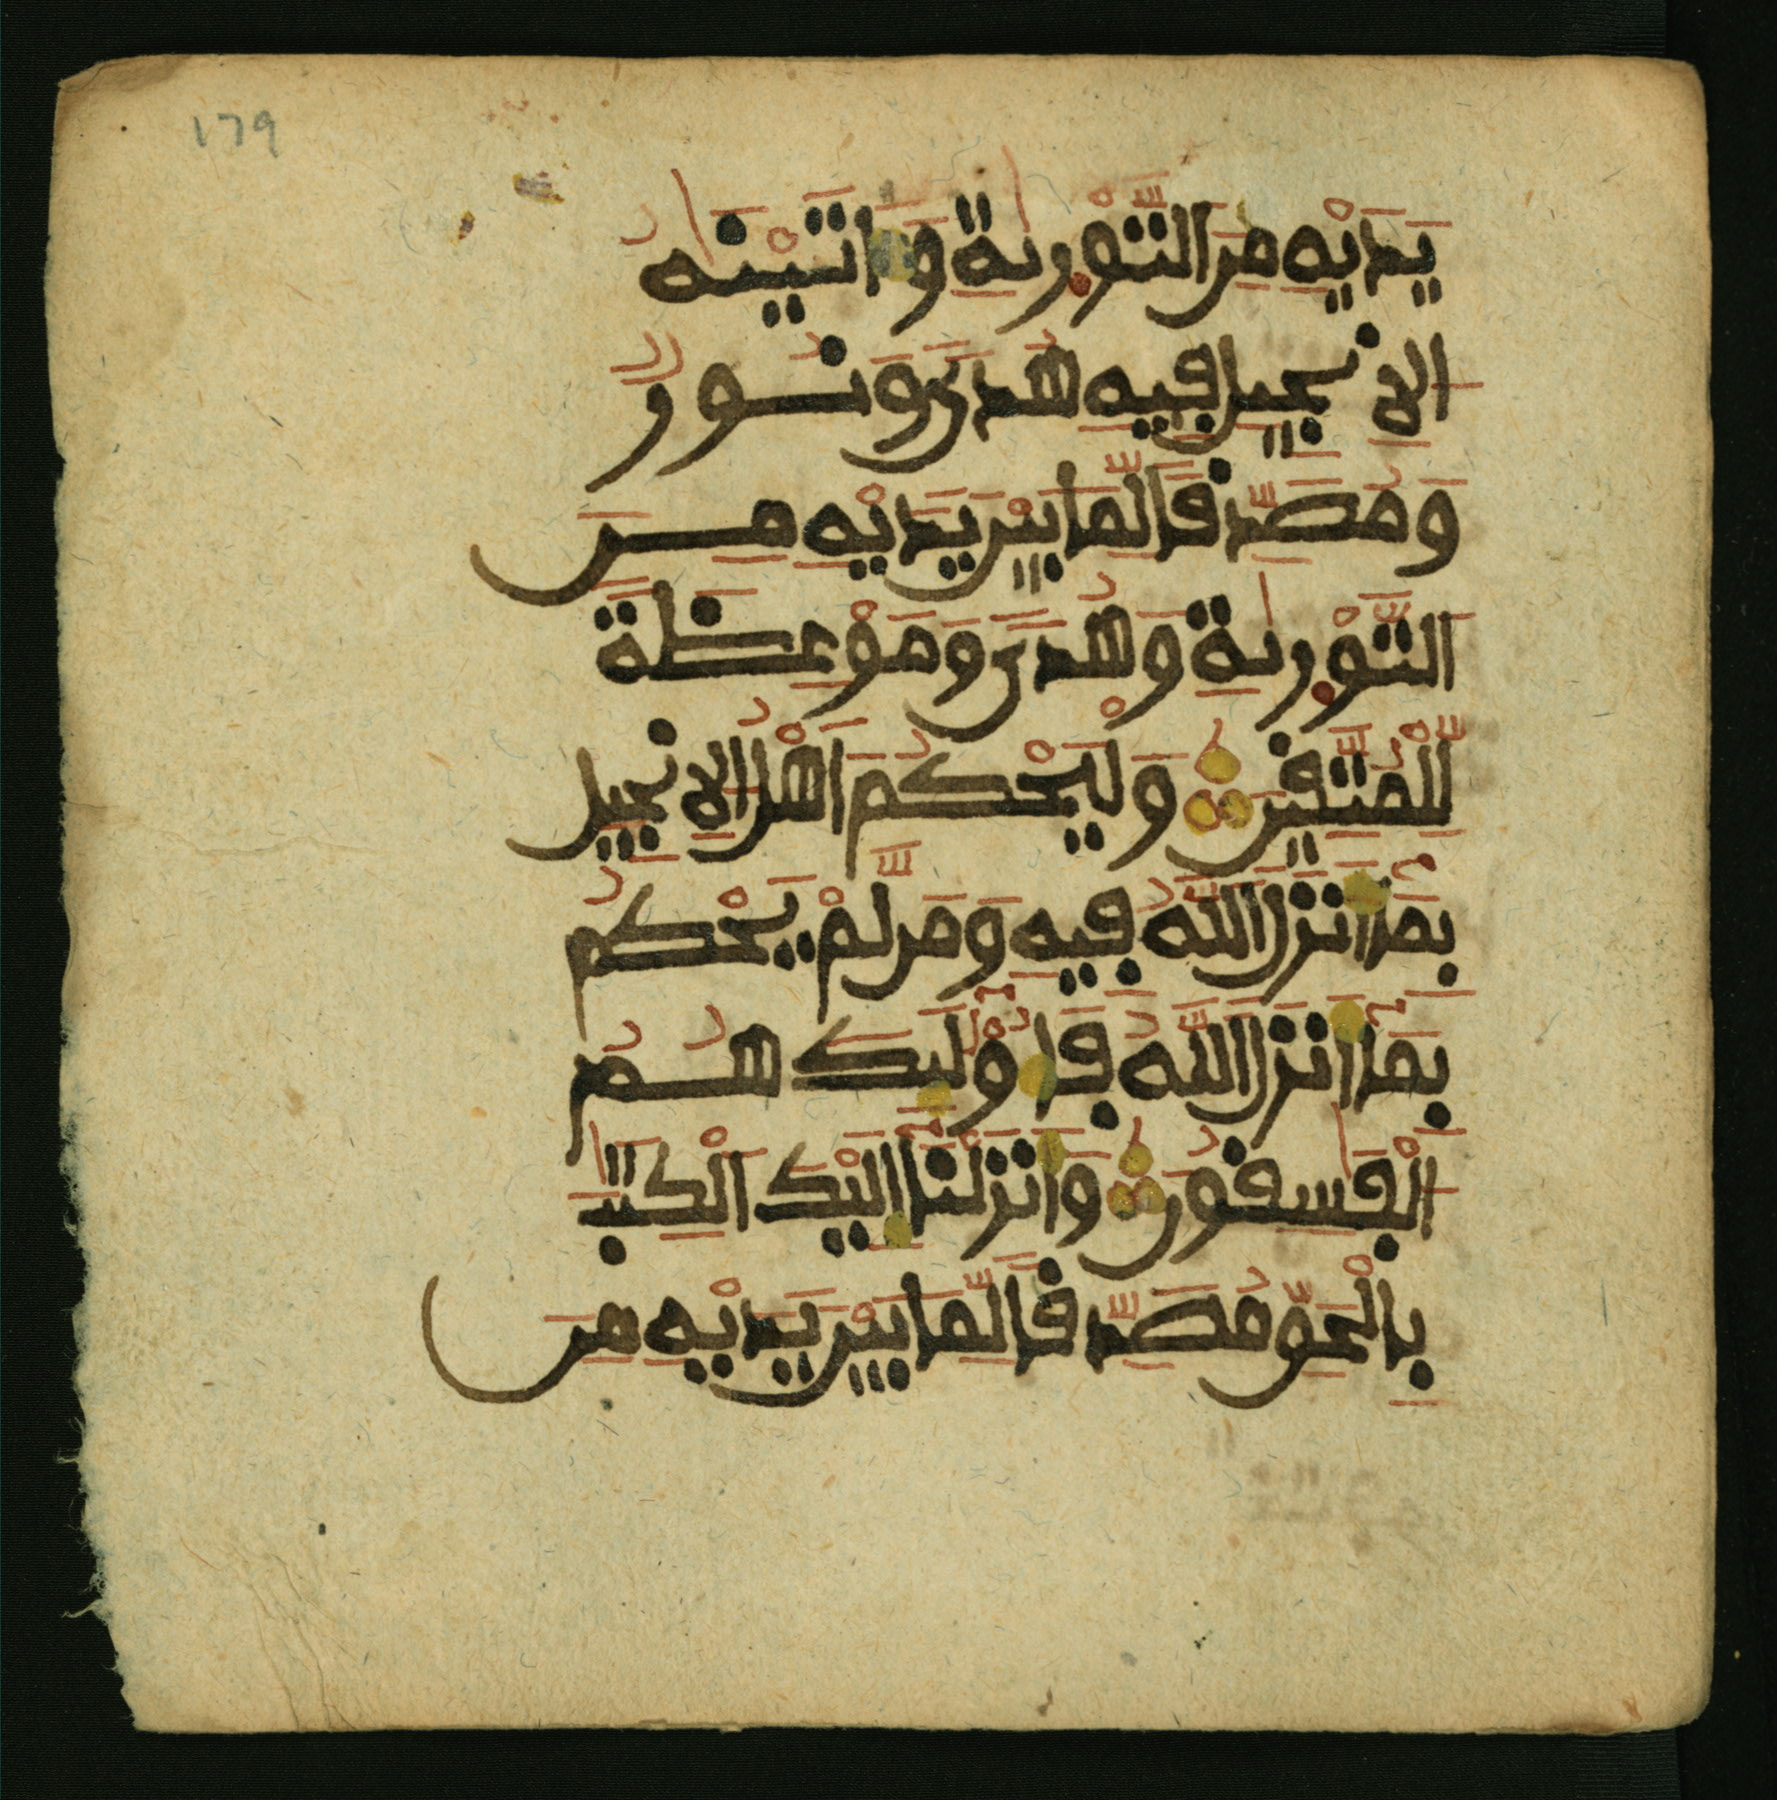 ١٦٩
يَدَيْهِ مِنَ التَّوْرٜيٰةِ وَءَاتَيْنٰهُ
الِانجِيلَ فِيهِ هُدًى وَنُورٌ
وَمُصَدِّقًا لِّمَا بَيْنَ يَدَيْهِ مِنَ
التَّوْرٜيٰةِ وَهُدًى وَمَوْعِظَةً
لِّلْمُتَّقِينَ وَلْيَحْكُمَ اَهْلُ الِانجِيلِ
بِمَآ أَنزَلَ اللَّهُ فِيهِ وَمَن لَّمْ يَحْكُم
بِمَآ أَنزَلَ اللَّهُ فَأُوْلَٰٓئِكَ هُمُ
الْفَٰسِقُونَ وَأَنزَلْنَآ إِلَيْكَ الْكِتَٰبَ
بِالْحَقِّ مُصَدِّقًا لِّمَا بَيْنَ يَدَيْهِ مِنَ